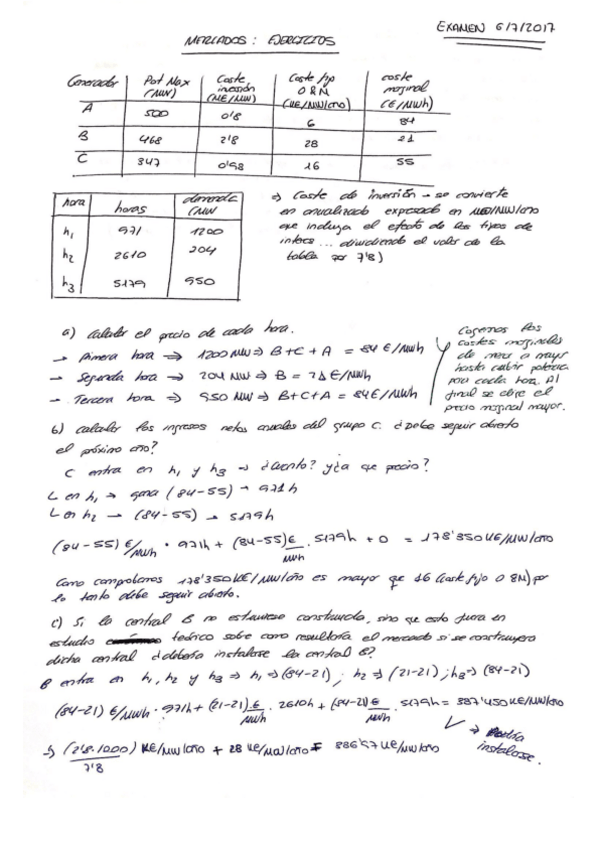 EXAMEN 6/7/2017
MERCADOS: EJERCICIOS
Generador Pot Max (MW) Coste inversión (M€/MW) Coste fijo O&M (k€/MW/año) coste marginal (€/MWh)
A 500 0'8 6 84
B 468 2'8 28 21
C 347 0'98 16 55
hora horas demanda (MW
h1 971 1200
h2 2610 204
h3 5179 950
=> Coste de inversión → se convierte
en anualizado expresado en /MW/año
que incluya el efecto de los tipos de
interes ... dividiendo el valor de la
tabla por 7'8)
a) Calcular el precio de cada hora.
→ Primera hora => 1200 MW => B+C+A = 84 €/MWh
→ Segunda hora => 204 MW => B = 21 €/MWh
→ Tercera hora => 950 MW => B+C+A = 84 €/MWh
Cogemos los
costes marginales
de menor a mayor
hasta cubrir potencia
para cada hora. Al
final se elige el
precio marginal mayor.
b) Calcular los ingresos netos anuales del grupo C. ¿Debe seguir abierto
el próximo año?
C entra en h1 y h3 → ¿Cuánto? y ¿a que precio?
L en h1 → gana (84-55) → 971h
L en h2 → (84-55) → 5179h
(84-55) €/MWh · 971h + (84-55) €/MWh · 5179h + 0 = 178'350 k€/MW/año
Como comprobamos 178'350 k€/MW/año es mayor que 16 (coste fijo O&M) por
lo tanto debe seguir abierto.
c) Si la central B no estuviese construida, sino que esto fuera un
estudio teórico sobre como resultaría el mercado si se construyera
dicha central ¿debería instalarse la central B?
B entra en h1, h2 y h3 => h1 => (84-21) ; h2 => (21-21) ; h3 => (84-21)
(84-21) €/MWh · 971h + (21-21) €/MWh · 2610h + (84-21) €/MWh · 5179h = 387'450 k€/MW/año
→ (2'8·1000)/7'8 k€/MW/año + 28 k€/MW/año = 386'97 k€/MW/año
→ Podría
instalarse.